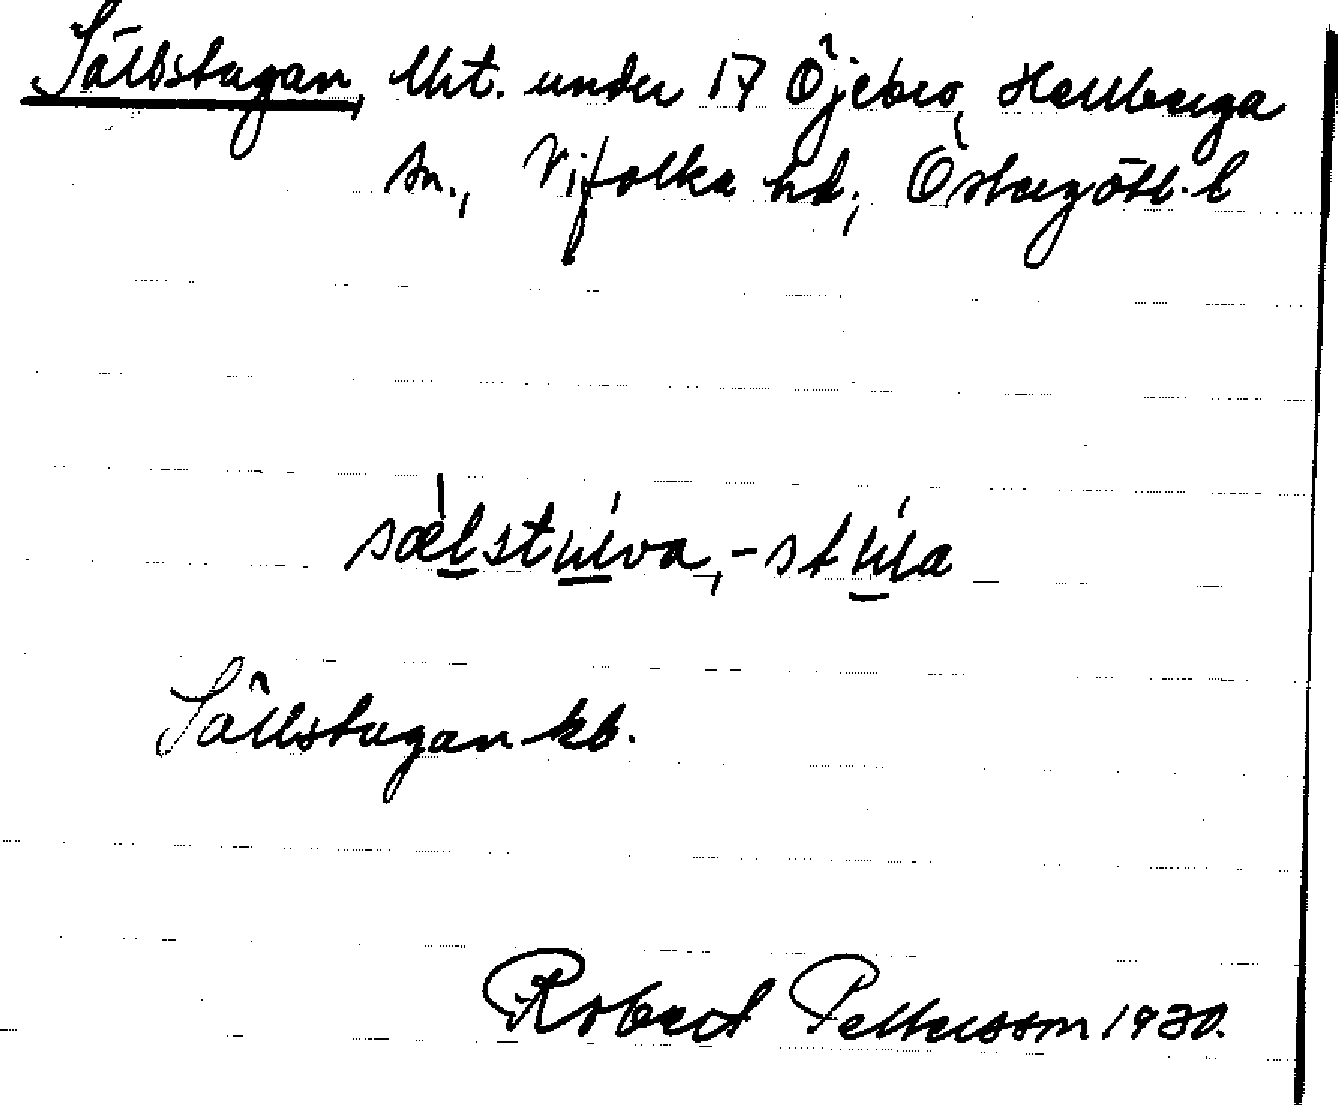 Sällstugan, lht. under 17 Öjebro, Herrberga
sn., Vifolka hd., Östergötl. l
sælstuva, -stúa
Sällstugan kb.
Robert Pettersson 1930.